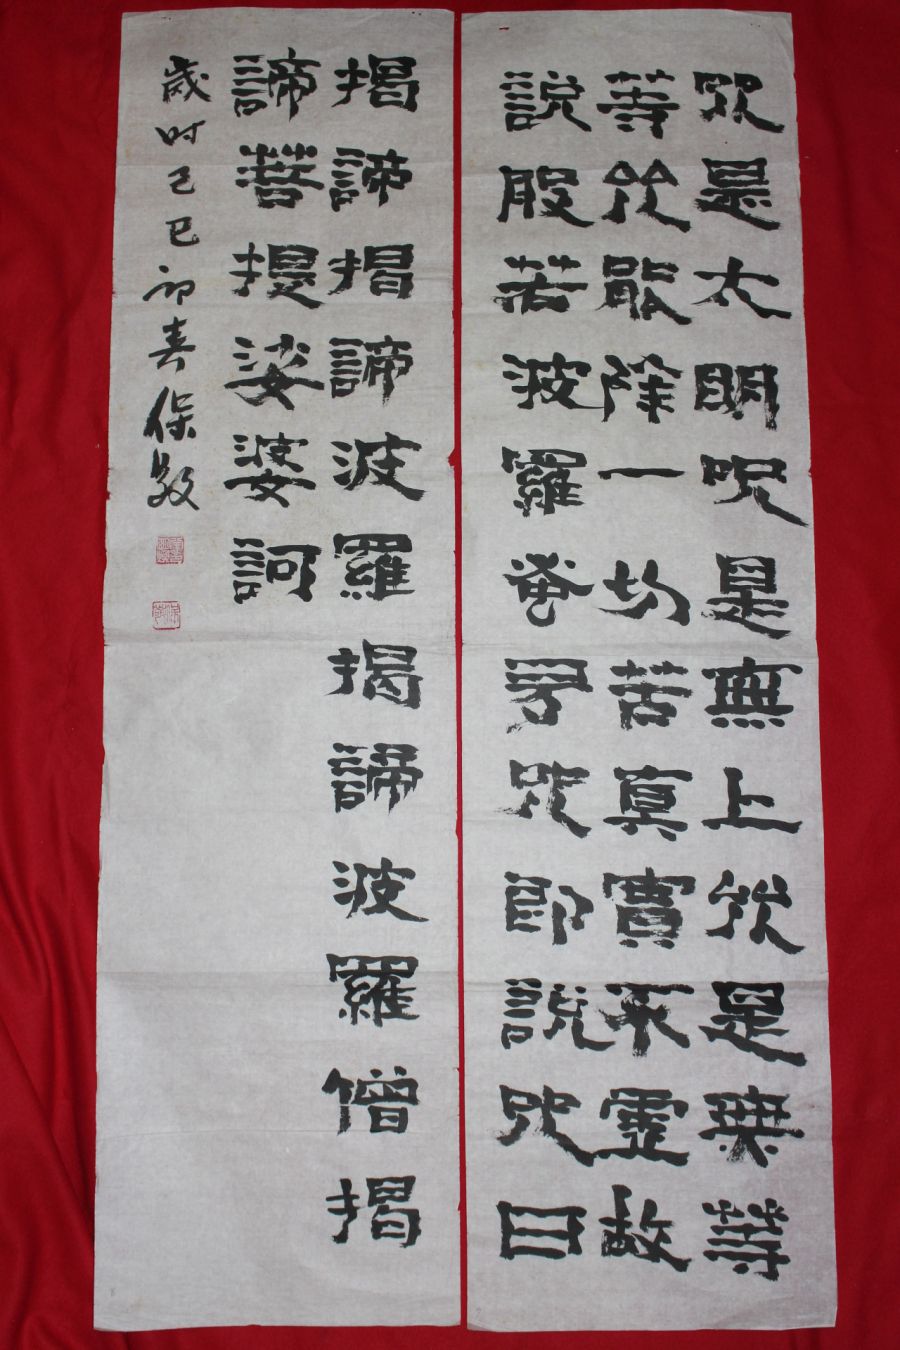 呪是太明呪是無上呪是無等
等呪能除一切苦真實不虛故
說般若波羅蜜多呪即說呪曰
揭諦揭諦波羅揭諦波羅僧揭
諦菩提娑婆訶
歲时己巳初春保